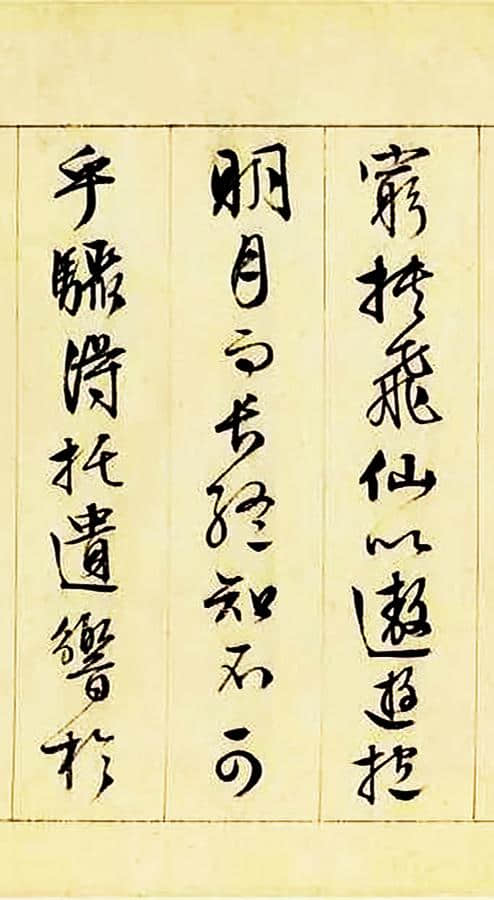 窮挾飛仙以遨遊抱
明月而長終知不可
乎驟得托遺響於